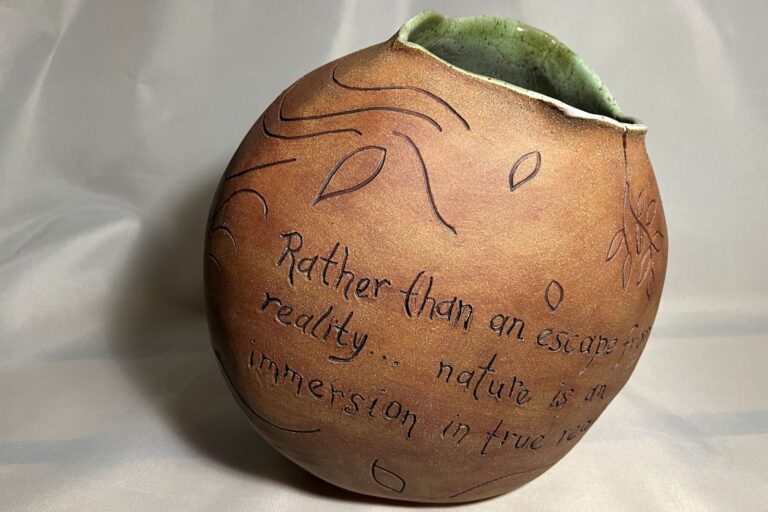 Rather than an escape from
reality... nature is an
immersion in true